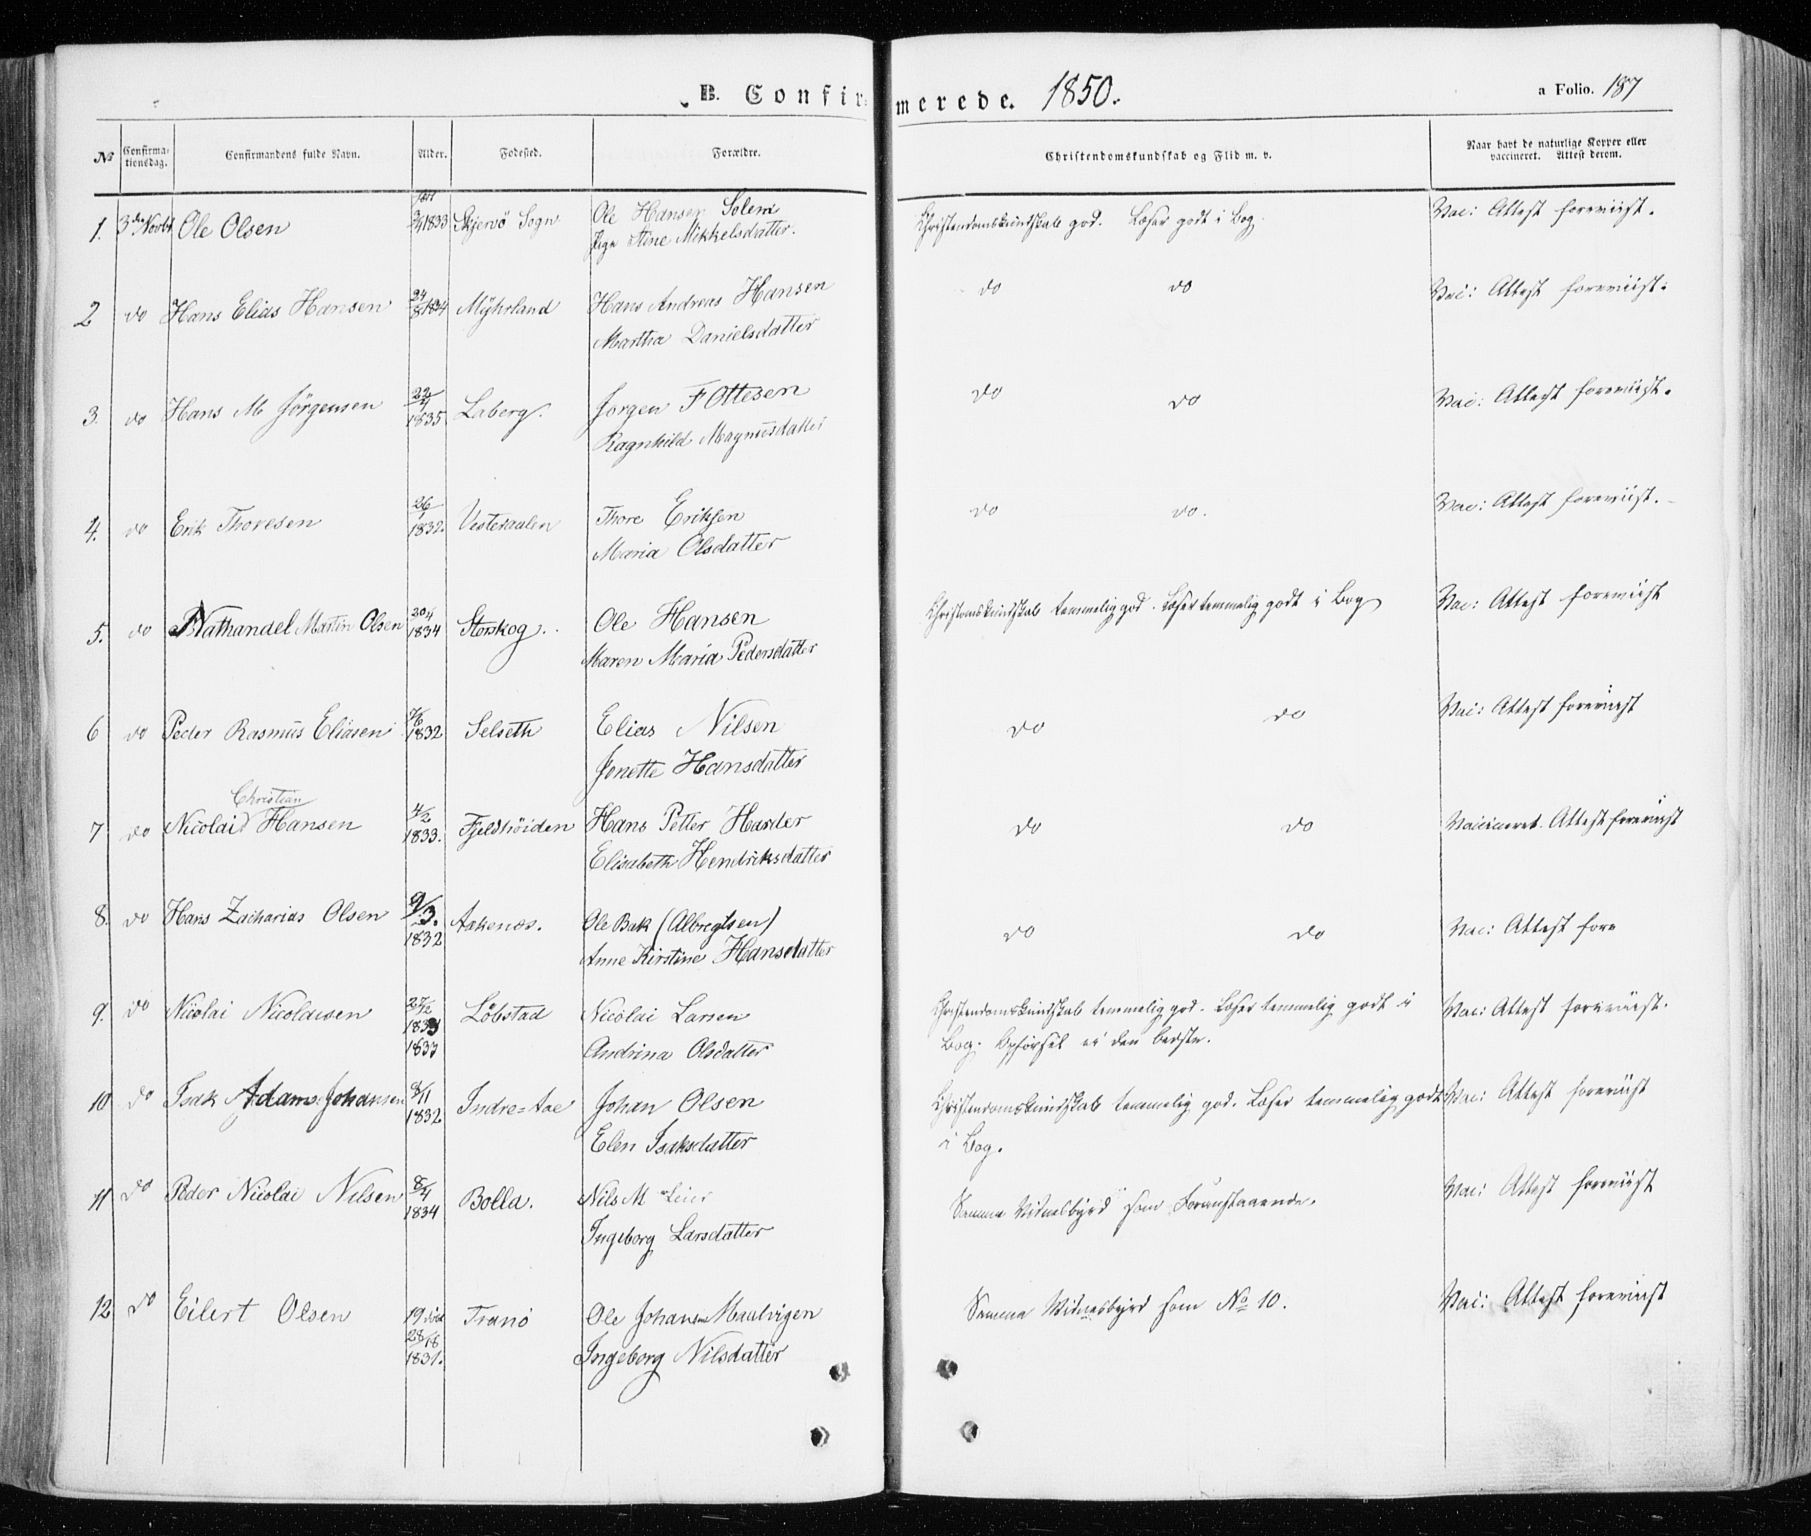 B. Confirmerede. 1850.
a Folio. 187
No Confirmationsdag. Confirmandens fulde Navn. Alder. Fodested. Forældre. Christendomskundskab og Flid m. v. Naar havt de naturlige Kopper eller vaccineret. Attest derom.
1. 3die Novbr Ole Olsen 1833 Skjervö Sogn Ole Hansen Solem Christendomskundskab god. Læser godt i Bog. Vac: Attest foreviist.
Pige Stine Mikkelsdatter.
2 do Hans Elias Hansen 24/8 1834 Myhrland Hans Andreas Hansen do do Vac: Attest foreviist.
Martha Danielsdatter
3. do Hans M Jörgensen 22/4 1835 Laberg. Jorgen F Ottesen do do Vac: Attest foreviist.
Ragnhild Magnusdatter
4. do Erik Thoresen 26/1 1832. Vesteraalen Thore Eriksen do do. Vac: Attest foreviist.
Maria Olsdatter
5. do Nathandel Martin Olsen 20/4 1834 Storskog. Ole Hansen Christendomskundskab temmelig god. Læser temmelig godt i Bog Vac: Attest foreviist
Maren Maria Pedersdatter
6 do Peder Rasmus Eliasen 7/6 1832 Selseth Elias Nilsen do do Vac: Attest foreviist
Jonette Hansdatter
Christian
7 do Nicolai Hansen 4/2 1833. Fjeldhöiden Hans Petter Harder do do Vaccineret. Attest foreviist
Elisabeth Hendriksdatter
8. do Hans Zacharias Olsen 9/3. 1832 Aakenæs. Ole Bak (Albregtsen) do do Vac: Attest fore
Anne Kirstine Hansdatter
9. do Nicolai Nicolaisen 27/2 1833 1833 Löbstad Nicolai Larsen Christendomskundskab temmelig god. Læser temmelig godt i Vac: Attest foreviist.
Andrina Olsdatter Bog. Opförsel ei den bedste.
10 do Isak Adam Johansen 8/11 1832 Indre=Aae Johan Olsen Christendomskundskab temmelig god. Læser temmelig godt Vac: Attest foreviist
Elen Isaksdatter i Bog.
11 do Peder Nicolai Nilsen 8/4 1834 Bolla. Nils M Leier Samme Vidnesbyrd som Foranstaaende. Vac: Attest foreviist
Ingeborg Larsdatter
12 do Eilert Olsen 28/18 1831. Tranö Ole Johansen Maalvigen Samme Vidnesbyrd som No 10. Vac: Attest foreviist
Ingeborg Nilsdatter